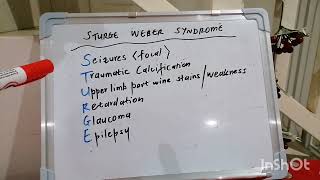 STURGE WEBER SYNDROME
Seizures <focal>
Traumatic Calcification
Upper limb port wine stains / weakness
Retardation
Glaucoma
Epilepsy
InShOt